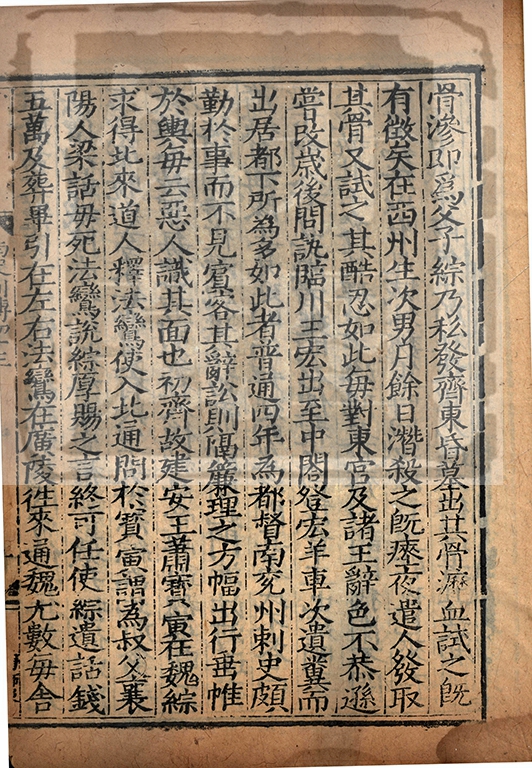 骨滲即爲父子綜乃私發齊東昏墓出其骨瀝血試之既
有徵矣在西州生次男月餘日潛殺之既瘞夜遣人發取
其骨又試之其酷忍如此每對東宮及諸王辭色不恭遜
嘗改歲後問訊臨川王宏出至中閤登宏羊車次遺糞而
出居都下所為多如此者普通四年為都督南兖州刺史頗
勤於事而不見賔客其辭訟則隔簾理之方幅出行垂帷
於輿毋云惡人識其面也初齊故建安王蕭寶寅在魏綜
求得北來道人釋法鸞使入北通問於寳寅謂為叔父襄
陽人梁話毋死法鸞說綜厚賜之言終可任使綜遺話錢
五萬及葬畢引在左右法鸞在廣陵徃來通魏尤數毋舎